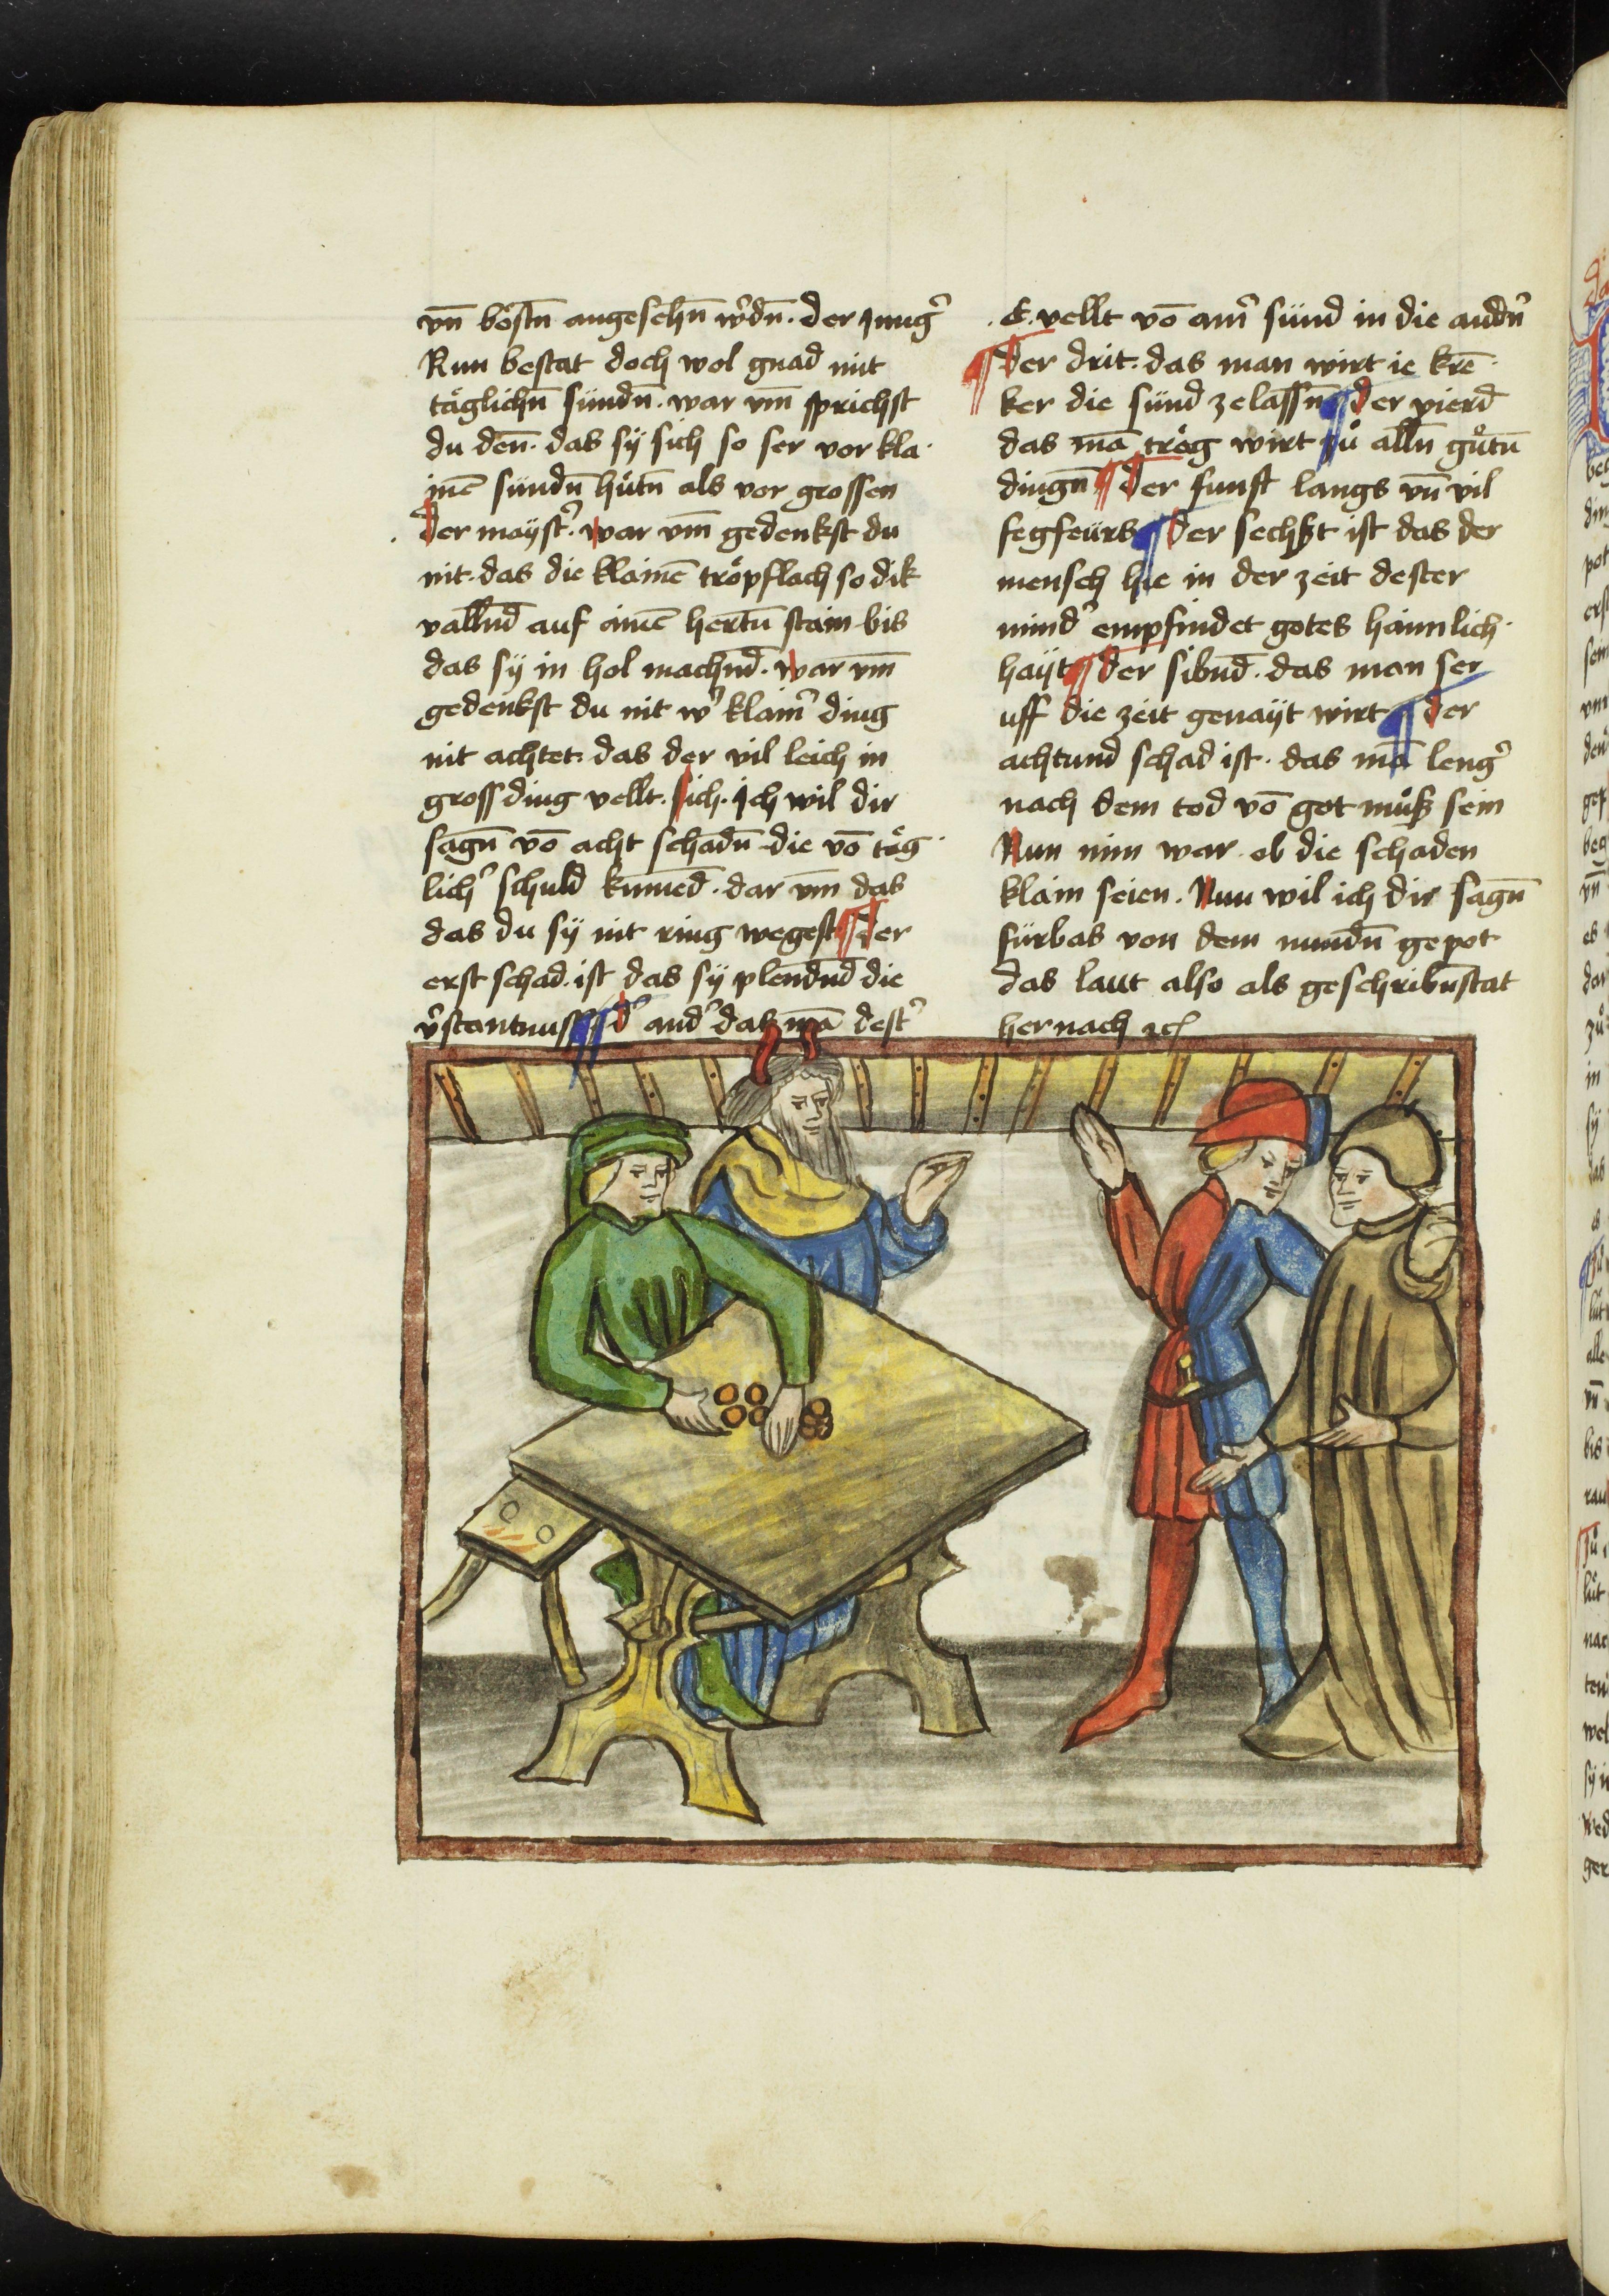 vn̄ böstn̄ angesehn̄ w̕dn̄. der Jung̕
Nun bestat doch wol gnad mit
täglichn̄ sündn̄. war vm̄ sprichst
du den̄. das sÿ sich so ser vor kla
inē sündn̄ hütn̄ als vor grossen
der maÿst̕. war vm̄ gedenkst du
nit. das die klainē tröpflach so dik
vallnd̄ auf ainē hertn̄ stain bis
das sÿ in hol machnd̄. war vm̄
gedenkst du nit w̕ klain̕ ding
nit achtet. das der vil leich in
gross ding vellt. sich. Jch wil dir
sagn̄ vō acht schadn̄ die vō täg
lich̕ schuld kumēd. dar vm̄ das
das du sÿ nit ring wegest ¶ der
erst schad. ist das sÿ plendnd̄ die
v̕stantnuss ¶ d̕ and̕ das mā dest̕
E. vellt vō ain̕ sünd in die andn̕
¶ Der drit. das man wirt ie krē
ker die sünd ze lassn̄ ¶ der vierd
das mā träg wirt zů alln̄ gůtn̄
dingn̄ ¶ Der funft langs vn̄ vil
fegfeürs ¶ Der sechßt ist das der
mensch hie in der zeit dester
mind̕ empfindet gotes haimlich
haÿt ¶ der sibnd̄. das man ser
uff die zeit genaÿt wirt ¶ der
achtund schad ist. das mā leng̕
nach dem tod vō got můß sein
Nun nim war. ob die schaden
klain seien. Nun wil ich dir sagn̄
fürbas von dem nundn̄ gepot
das laut also als geschribn̄ stat
her nach ꝛc